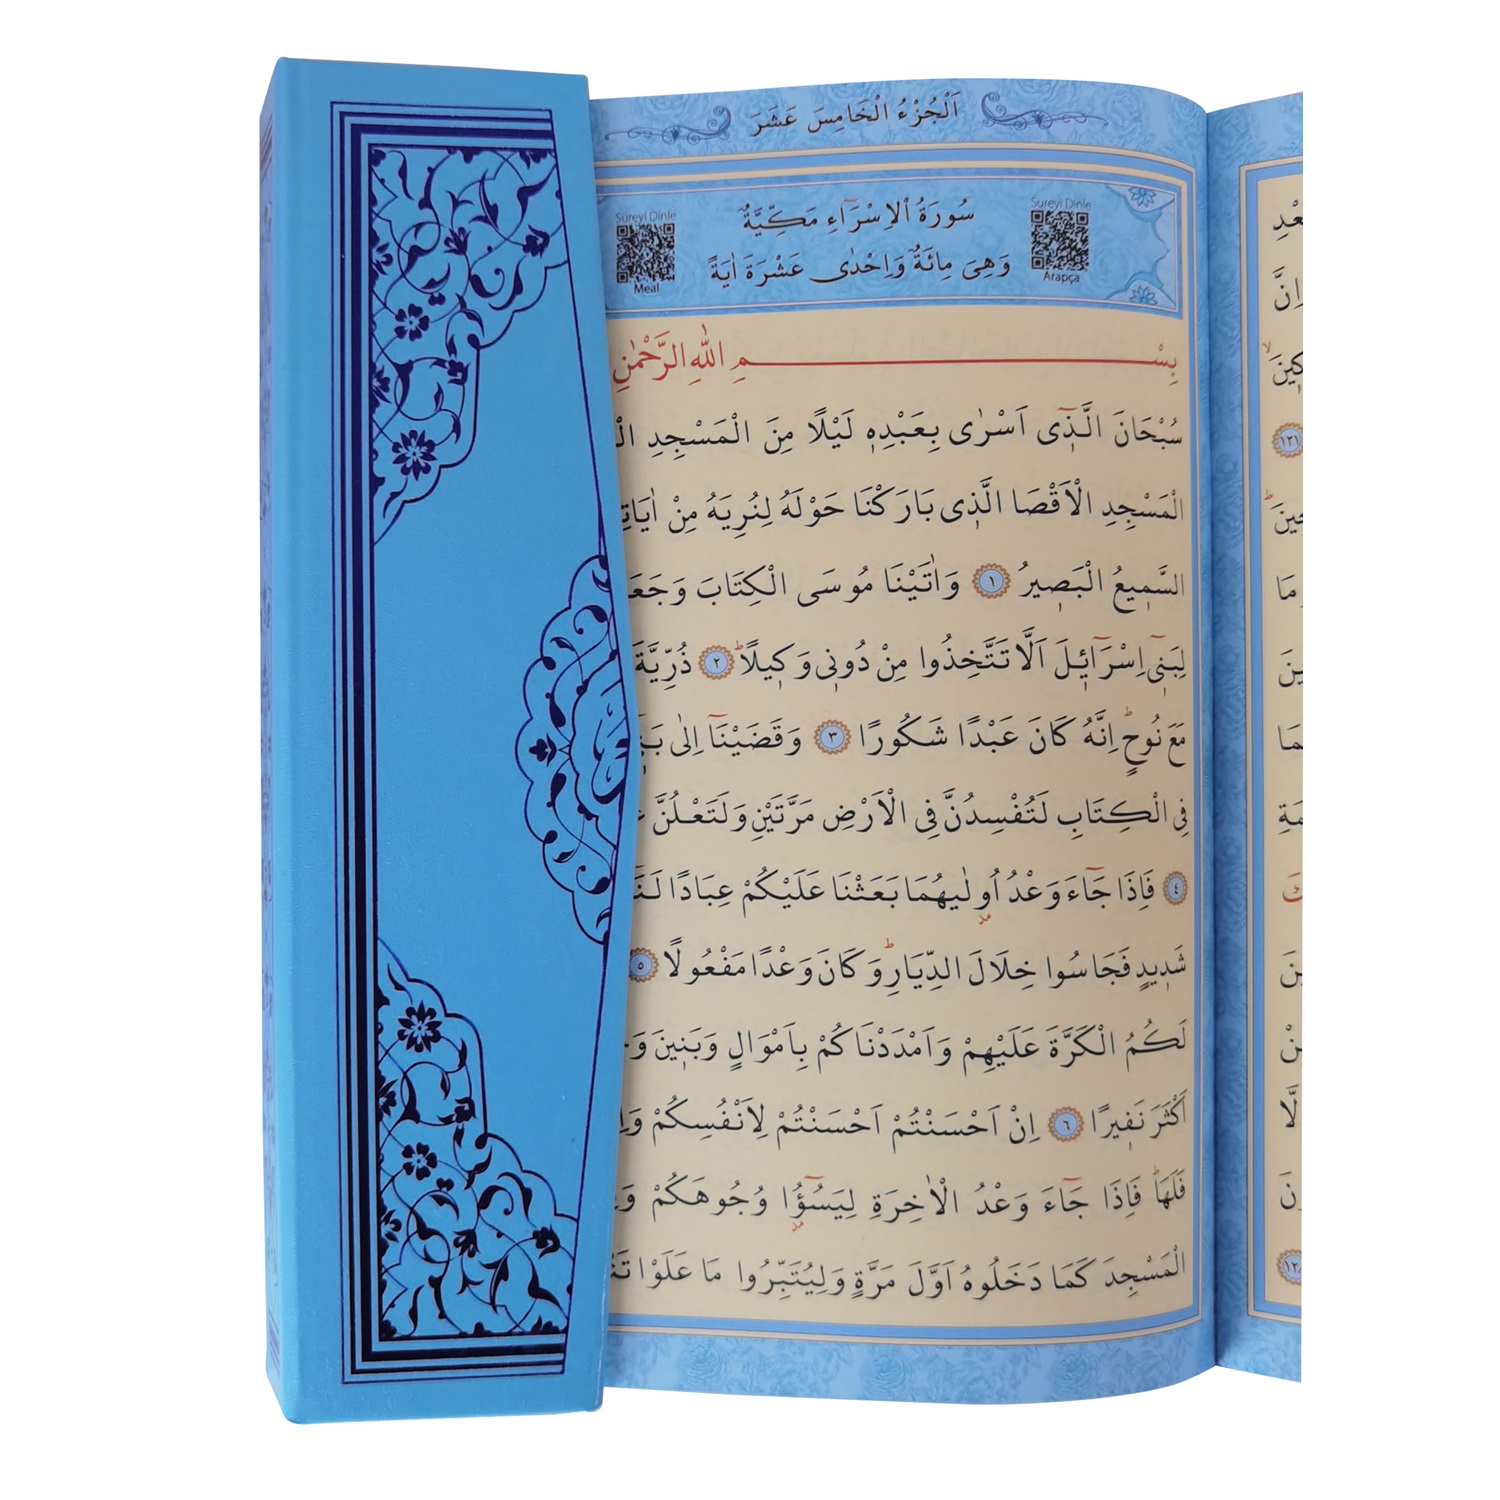 اَلْجُزْءُ الْخَامِسَ عَشَرَ
Sureyi Dinle
Arapça
سُورَةُ الْاِسْرَٓاءِ مَكِّيَّةٌ
وَهِيَ مِائَةٌ وَاِحْدٰى عَشْرَةَ اٰيَةً
Sureyi Dinle
Meal
بِسْمِ اللّٰهِ الرَّحْمٰنِ
سُبْحَانَ الَّذٖٓى اَسْرٰى بِعَبْدِهٖ لَيْلًا مِنَ الْمَسْجِدِ
الْمَسْجِدِ الْاَقْصَا الَّذٖى بَارَكْنَا حَوْلَهُ لِنُرِيَهُ مِنْ
السَّمٖيعُ الْبَصٖيرُ ١ وَاٰتَيْنَا مُوسَى الْكِتَابَ
لِبَنٖٓى اِسْرَٓائٖلَ اَلَّا تَتَّخِذُوا مِنْ دُونٖى وَكٖيلًا ٢ ذُرِّيَّةَ
مَعَ نُوحٍ اِنَّهُ كَانَ عَبْدًا شَكُورًا ٣ وَقَضَيْنَٓا اِلٰى
فِى الْكِتَابِ لَتُفْسِدُنَّ فِى الْاَرْضِ مَرَّتَيْنِ وَلَتَعْلُنَّ
٤ فَاِذَا جَٓاءَ وَعْدُ اُو۫لٰيهُمَا بَعَثْنَا عَلَيْكُمْ عِبَادًا
شَدٖيدٍ فَجَاسُوا خِلَالَ الدِّيَارِ وَكَانَ وَعْدًا مَفْعُولًا ٥
لَكُمُ الْكَرَّةَ عَلَيْهِمْ وَاَمْدَدْنَاكُمْ بِاَمْوَالٍ وَبَنٖينَ
اَكْثَرَ نَفٖيرًا ٦ اِنْ اَحْسَنْتُمْ اَحْسَنْتُمْ لِاَنْفُسِكُمْ
فَلَهَا فَاِذَا جَٓاءَ وَعْدُ الْاٰخِرَةِ لِيَسُٓؤُا وُجُوهَكُمْ
الْمَسْجِدَ كَمَا دَخَلُوهُ اَوَّلَ مَرَّةٍ وَلِيُتَبِّرُوا مَا عَلَوْا